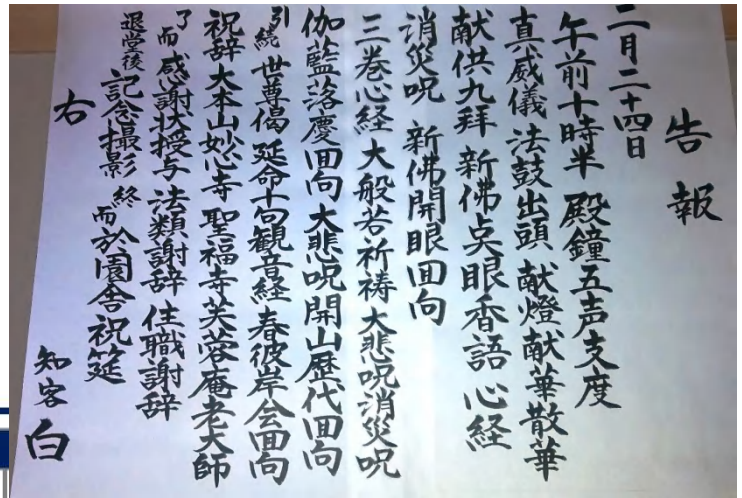 告報
二月二十四日
午前十時半 殿鐘五声支度
真威儀 法鼓出頭 献燈献華散華
献供九拝 新佛点眼香語 心経
消災呪 新佛開眼回向
三巻心経 大般若祈祷 大悲呪消災呪
伽藍落慶回向 大悲呪開山歴代回向
引続 世尊偈 延命十句観音経 春彼岸会回向
祝辞 大本山妙心寺 聖福寺芙蓉庵老大師
了而 感謝状授与 法類謝辞 住職謝辞
退堂後 記念撮影 終而於園舎祝筵
右
知客 白